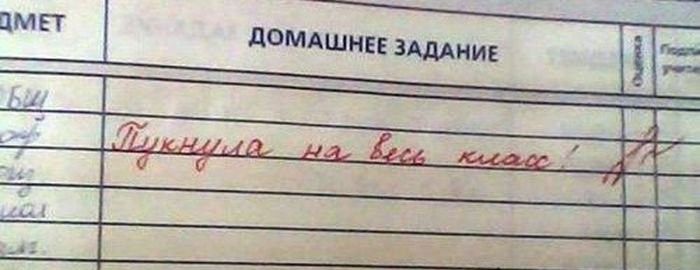 ДМЕТ
ДОМАШНЕЕ ЗАДАНИЕ
Оценка
Подпи
учите
Пукнула на весь класс!